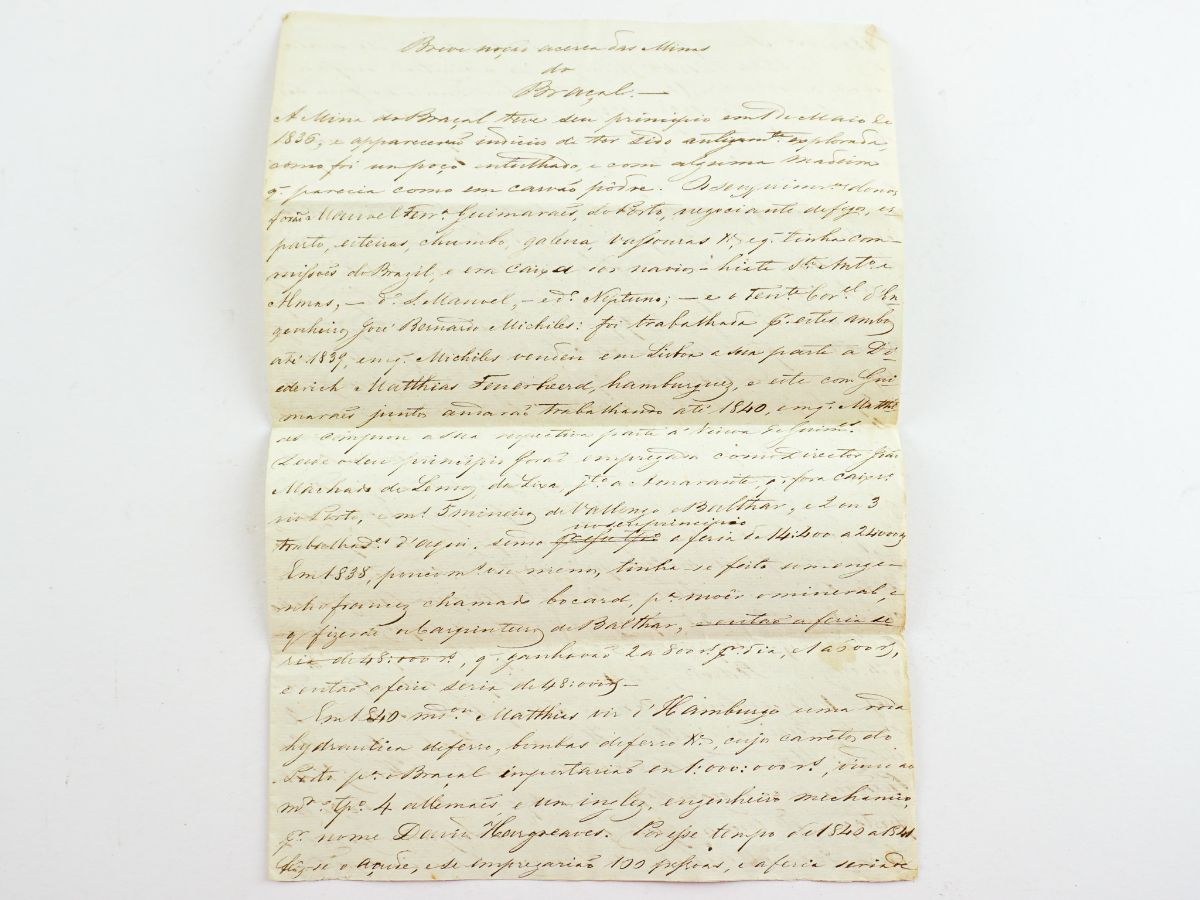 Breve noção acerca das Minas
do
Braçal. —
A Mina do Braçal teve seu principio em 1 de Maio de
1836, e apparecerão indicios de ter sido antigamte. explorada
como foi um poço entulhado, e com alguma madeira
q. parecia como em carvão pôdre. Os seus primros. donos
forão Manoel Ferra. Guimarães, do Porto, negociante de figos, es-
parto, esteiras, chumbo, galena, vassouras &, e q. tinha com-
missões do Brazil, e era caixa dos navios — hiate Sto. Anto. e
Almas, — do. S. Manoel, — e do. Neptuno; — e o Tente. Corel. d'En-
genheiros José Bernardo Michiles: foi trabalhada pr. estes ambos
até 1839, em q. Michiles vendeu em Lisboa a sua parte a Di-
ederich Matthias Feuerheerd, hamburguez, e este com Gui-
marães junto andarão trabalhando até 1840, em q. Matthi-
as comprou a sua respectiva parte á Viuva de Guimes.
Desde o seu principio forão empregados como director João
Machado de Lemos, da Lixa, jto. a Amarante, q. fora caixro.
no Porto, e ms. 7 mineiros de Vallongo e Balthar, e 2 ou 3
trabalhadres. d'aqui, sendo no seo principio a feria de 14:400 a 24000 rs
Em 1838, pouco ms. ou menos, tinha-se feito um enge-
nho francez chamado bocard, pa. moêr o mineral, e
q. fizerão os Carpinteiros de Balthar, e então a feria se
ria de 48:000 rs., q. ganhavão 2 a 800 rs. pr. dia, e 1 a 600 rs,
e então a feria seria de 48:000 rs —
Em 1840 mdou. Matthias vir d'Hamburgo uma roda
hydraulica de ferro, bombas de ferro &, cujos carretos do
Porto pa. o Braçal importarião en 1:000:000 rs, vindo ao
mmo. tpo. 4 allemães e um inglez, engenheiro mechanico,
pr. nome David Hargreaves. Por esse tempo de 1840 a 1841
fez-se o açude, e se empregarião 100 pessoas, e a feria seria de